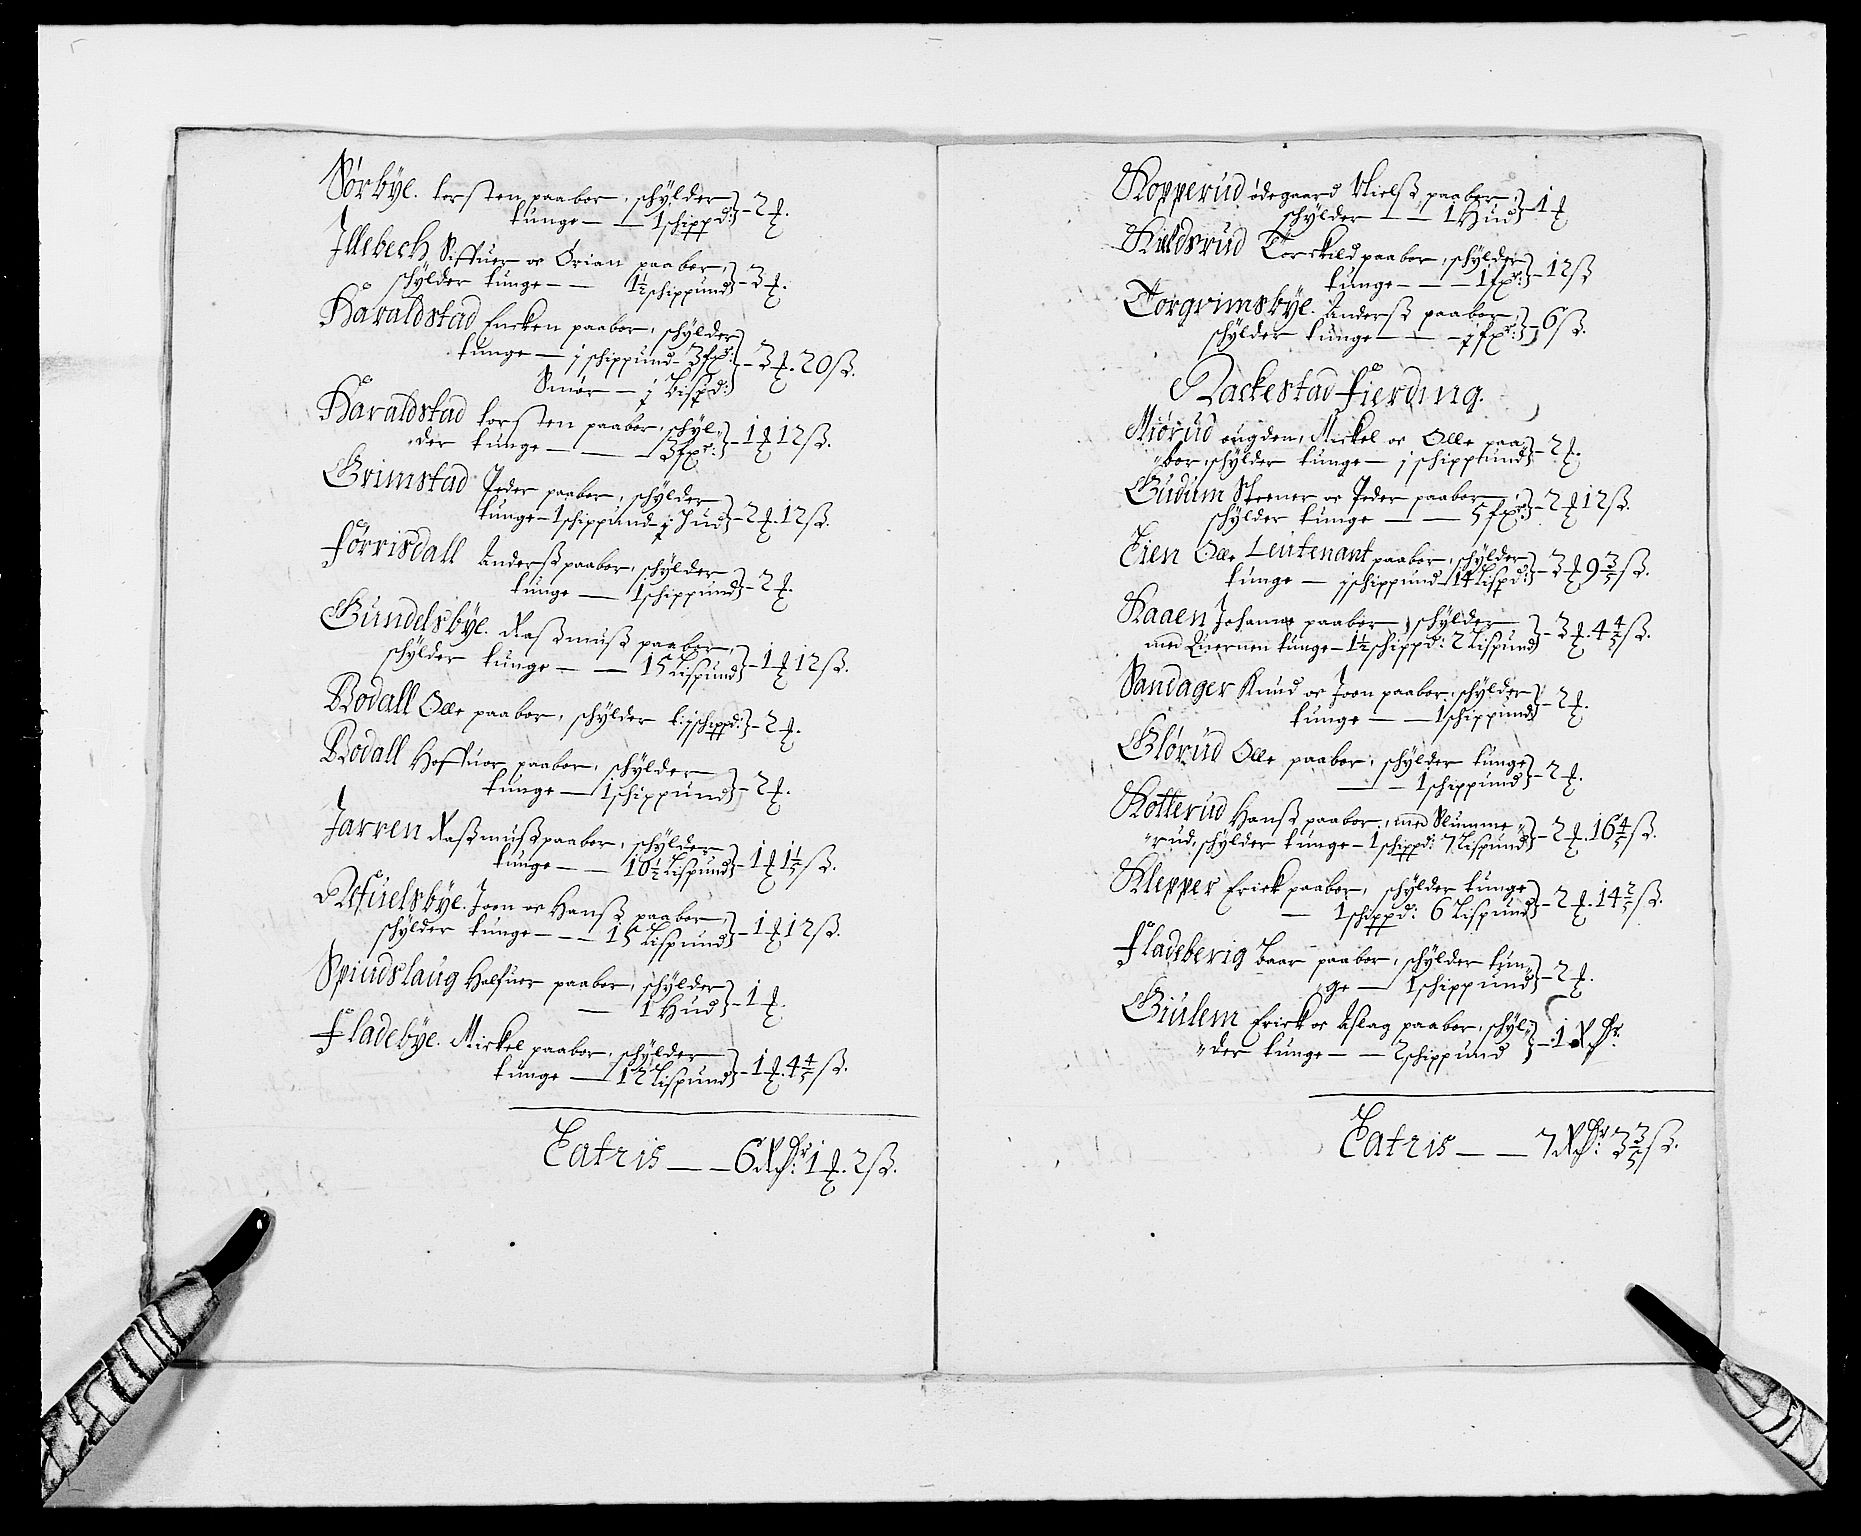 Sørbÿe. torsten paaboe, schÿlder
tunge — 1 schippd: } - 2 ƒ.
Illebech, Siffuer oc Örian paaboe,
schÿlder tunge — 1½ schippund } - 3 ƒ.
Haraldstad Encken paaboe, schÿlder
tunge — j schippund - 3 fxr: } - 3 ƒ. 20 ß.
Smør — j bispd:
Haraldstad torsten paaboe, schÿl-
der tunge — 3 fxr: } - 1 ƒ 12 ß.
Grimstad Peder paaboe, schÿlder
tunge - 1 schippund - j Hud } - 2 ƒ. 12 ß.
Førrisdall Anderß paaboe, schÿlder
tunge — 1 schippund } - 2 ƒ.
Gundelsbÿe. Raßmuß paaboe,
schÿlder tunge — 15 Lispund } - 1 ƒ 12 ß.
Bodall Olle paaboe, schÿlder t: j schippd: } - 2 ƒ.
Bodall Hoffuor paaboe, schÿlder
tunge — 1 schippund } - 2 ƒ.
Jarren Raßmuß paaboe, schÿlder
tunge — 10½ Lispund } - 1 ƒ 1⅕ ß.
Refuelsbÿe. Joen oc Hanß paaboe,
schÿlder tunge — 15 Lispund } - 1 ƒ 12 ß.
Spiudslaug Halfuer paaboe, schÿlder
— 1 Hud } - 1 ƒ.
Fladebÿe. Mickel paaboe, schÿlder
tunge — 12 Lispund } - 1 ƒ. 4⅘ ß.
Latris — 6 Rdr: 1 ƒ. 2 ß.
Kopperud ødegaard Nielß paaboe,
schÿlder — 1 Hud } - 1 ƒ
Torckild paaboe, schÿlder
tunge — 1 fxr: } - 12 ß
Torgrimsbÿe. Anderß paaboe,
schÿlder tunge — fxr: } - 6 ß.
Rackestad Fierding.
Miørud øugden, Mickel oc Olle paa-
boe, schÿlder tunge — j schippund } - 2 ƒ.
Gudum Steener oc Peder paaboe,
schÿlder tunge — 5 fxr: } - 2 ƒ 12 ß.
Lien Olle Leutenant paaboe, schÿlder
tunge — j schippund - 14 Lispd: } - 3 ƒ 9⅗ ß.
Haaen Johanne paaboe, schÿlder
med Quernen tunge - 1½ schippd: 2 Lispund } - 3 ƒ. 4⅘ ß.
Sandager Knud oc Joen paaboe, schÿlder
tunge — 1 schippund } - 2 ƒ.
Glørud Olle paaboe, schÿlder tunge
— 1 schippund } - 2 ƒ.
Kotterud Hanß paaboe, med Slumme-
rud, schÿlder tunge - 1 schippd: 7 Lispund } - 2 ƒ. 16⅘ ß.
Klepper Erick paaboe, schÿlder tunge
— 1 schippd: 6 Lispund } - 2 ƒ. 14⅖ ß.
Fladeberig Baar paaboe, schÿlder tun-
ge — 1 schippund } - 2 ƒ.
Giulem Erick oc Aslag paaboe, schÿl-
der tunge — 2 schippund } - 1 Rdr.
Latris — 7 Rdr: 3⅗ ß.